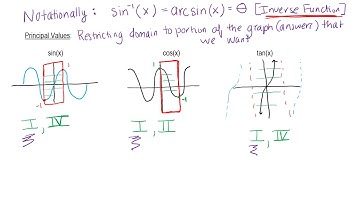 Notationally: sin⁻¹(x) = arcsin(x) = θ [Inverse Function]
Principal Values Restricting domain to portion of the graph (answers) that we want
sin(x) cos(x) tan(x)
1 1
-1 -1
I, IV I, II I, IV